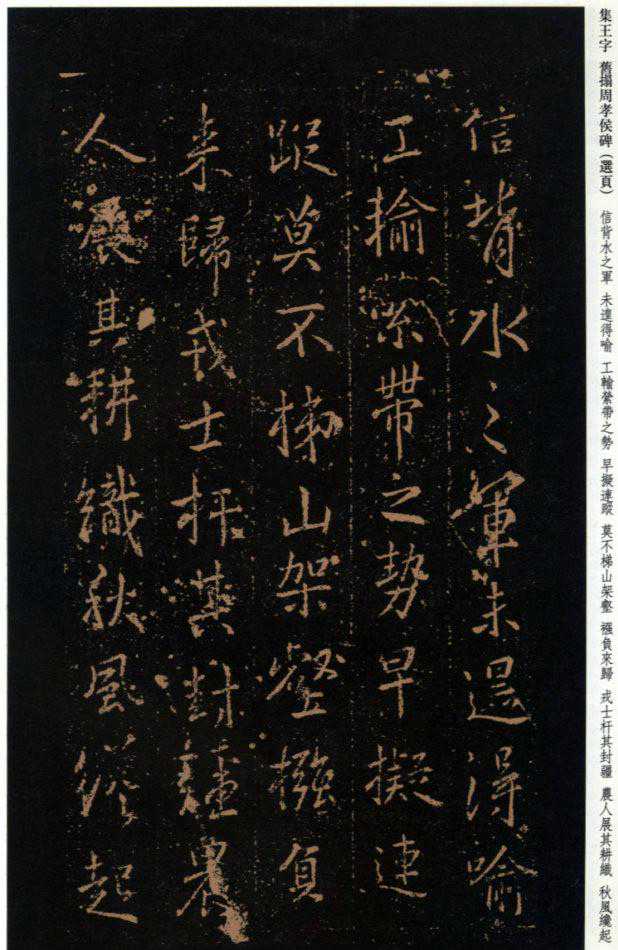 集王字 舊搨周孝侯碑（選頁） 信背水之軍 未遑得喻 工輸縈帶之勢 早擬連蹤 莫不梯山架壑 襁負來歸 戎士扞其封疆 農人展其耕織 秋風纔起
信背水之軍未遑得喻
工輸縈帶之勢早擬連
蹤莫不梯山架壑襁負
来歸戎士扞其封疆農
人展其耕織秋風纔起